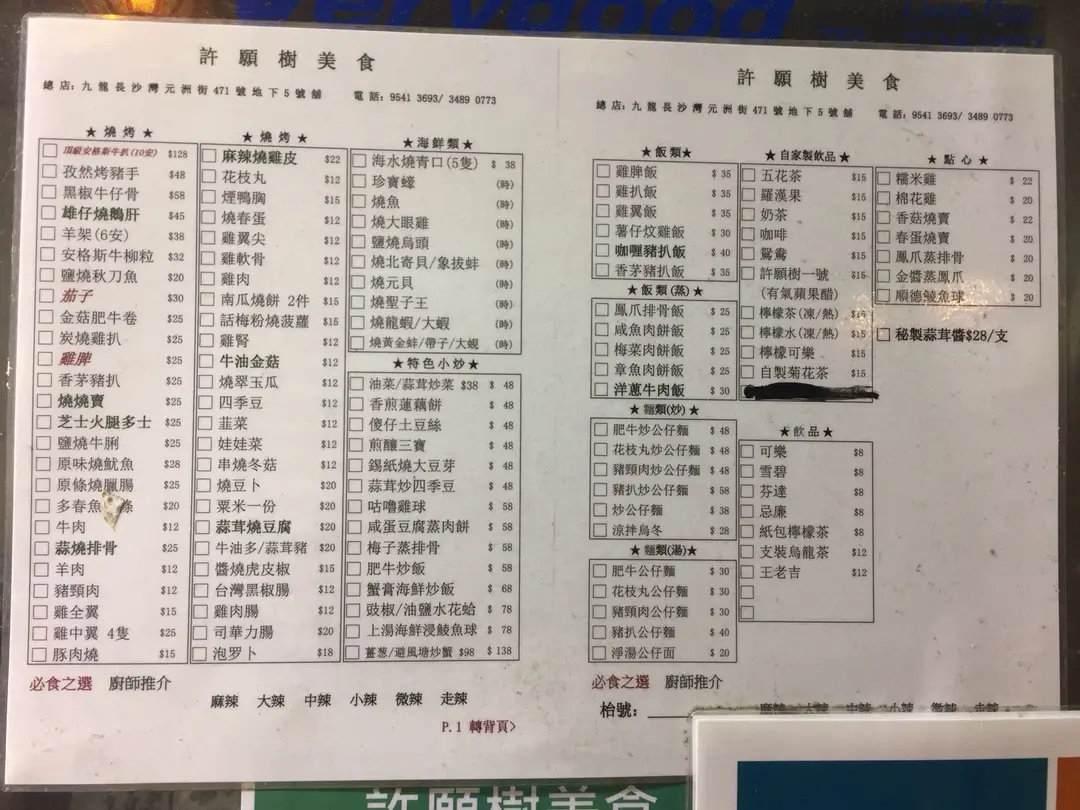 許願樹美食
總店:九龍長沙灣元洲街471號地下5號舖 電話:9541 3693/ 3489 0773
★燒烤★
頂級安格斯牛扒(10安) $128
孜然烤豬手 $48
黑椒牛仔骨 $58
雄仔燒鵝肝 $45
羊架(6安) $38
安格斯牛柳粒 $32
鹽燒秋刀魚 $20
茄子 $30
金菇肥牛卷 $25
炭燒雞扒 $25
雞脾 $25
香茅豬扒 $25
燒燒賣 $25
芝士火腿多士 $25
鹽燒牛脷 $25
原味燒魷魚 $28
原條燒臘腸 $20
多春魚 條 $20
牛肉 $12
蒜燒排骨 $25
羊肉 $12
豬頸肉 $12
雞全翼 $15
雞中翼 4隻 $25
豚肉燒 $15
★燒烤★
麻辣燒雞皮 $22
花枝丸 $12
煙鴨胸 $15
燒春蛋 $12
雞翼尖 $12
雞軟骨 $12
雞肉 $12
南瓜燒餅 2件 $15
話梅粉燒菠蘿 $15
雞腎 $12
牛油金菇 $12
燒翠玉瓜 $12
四季豆 $12
韮菜 $12
娃娃菜 $12
串燒冬菇 $12
燒豆卜 $20
粟米一份 $20
蒜茸燒豆腐 $20
牛油多/蒜茸豬 $20
醬燒虎皮椒 $15
台灣黑椒腸 $12
雞肉腸 $12
司華力腸 $20
泡罗卜 $18
★海鮮類★
海水燒青口(5隻) $ 38
珍寶蠔 (時)
燒魚 (時)
燒大眼雞 (時)
鹽燒烏頭 (時)
燒北寄貝/象拔蚌 (時)
燒元貝 (時)
燒聖子王 (時)
燒龍蝦/大蝦 (時)
燒黃金蚌/帶子/大蜆 (時)
★特色小炒★
油菜/蒜茸炒菜 $38 $ 48
香煎蓮藕餅 $ 48
傻仔土豆絲 $ 48
煎釀三寶 $ 48
錫紙燒大豆芽 $ 48
蒜茸炒四季豆 $ 48
咕嚕雞球 $ 58
咸蛋豆腐蒸肉餅 $ 58
梅子蒸排骨 $ 58
肥牛炒飯 $ 58
蟹膏海鮮炒飯 $ 68
豉椒/油鹽水花蛤 $ 78
上湯海鮮浸鯪魚球 $ 78
薑葱/避風塘炒蟹 $98 $ 138
必食之選 廚師推介
麻辣 大辣 中辣 小辣 微辣 走辣
P.1 轉背頁>
許願樹美食
總店:九龍長沙灣元洲街471號地下5號舖 電話:9541 3693/ 3489 0773
★飯類★
雞脾飯 $ 35
雞扒飯 $ 35
雞翼飯 $ 35
薯仔炆雞飯 $ 30
咖喱豬扒飯 $ 40
香茅豬扒飯 $ 35
★飯類(蒸)★
鳳爪排骨飯 $ 25
咸魚肉餅飯 $ 25
梅菜肉餅飯 $ 25
章魚肉餅飯 $ 25
洋蔥牛肉飯 $ 30
★麵類(炒)★
肥牛炒公仔麵 $ 48
花枝丸炒公仔麵 $ 48
豬頸肉炒公仔麵 $ 48
豬扒炒公仔麵 $ 58
炒公仔麵 $ 38
涼拌烏冬 $ 28
★麵類(湯)★
肥牛公仔麵 $ 30
花枝丸公仔麵 $ 30
豬頸肉公仔麵 $ 30
豬扒公仔麵 $ 40
淨湯公仔面 $ 20
★自家製飲品★
五花茶 $15
羅漢果 $15
奶茶 $15
咖啡 $15
鴛鴦 $15
許願樹一號 $15
(有氣蘋果醋)
檸檬茶(凍/熱) $15
檸檬水(凍/熱) $15
檸檬可樂 $15
自製菊花茶 $15
★飲品★
可樂 $8
雪碧 $8
芬達 $8
忌廉 $8
紙包檸檬茶 $8
支裝烏龍茶 $12
王老吉 $12
★點心★
糯米雞 $ 22
棉花雞 $ 20
香菇燒賣 $ 22
春蛋燒賣 $ 20
鳳爪蒸排骨 $ 20
金醬蒸鳳爪 $ 20
順德鯪魚球 $ 20
秘製蒜茸醬$28/支
必食之選 廚師推介
枱號:
麻辣 大辣 中辣 小辣 微辣 走辣
許願樹美食